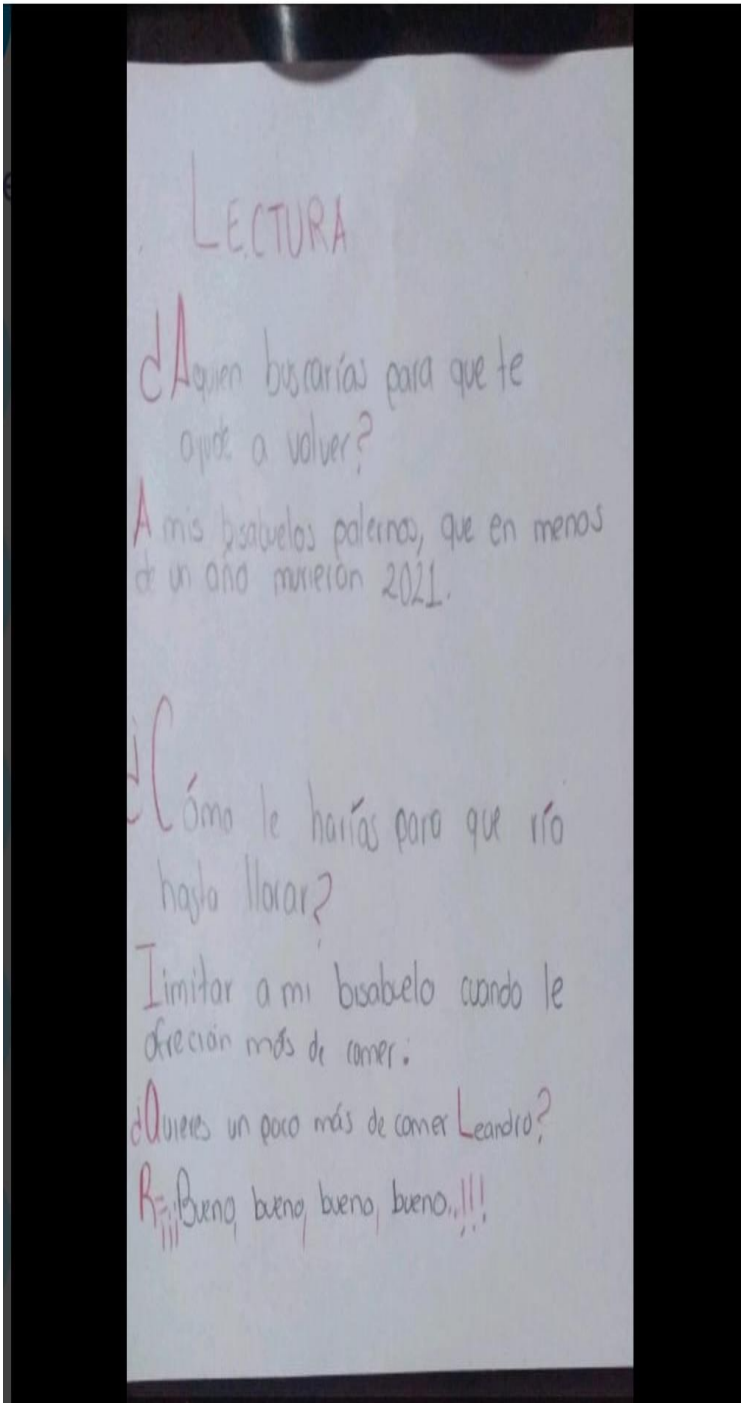 LECTURA
¿Aquien buscarías para que te
ayude a volver?
A mis bisabuelos paternos, que en menos
de un año murierón 2021.
¿Cómo le harías para que río
hasta llorar?
Iimitar a mi bisabuelo cuando le
ofrecían más de comer:
¿Quieres un poco más de comer Leandro?
R=¡¡¡Bueno, bueno, bueno, bueno...!!!